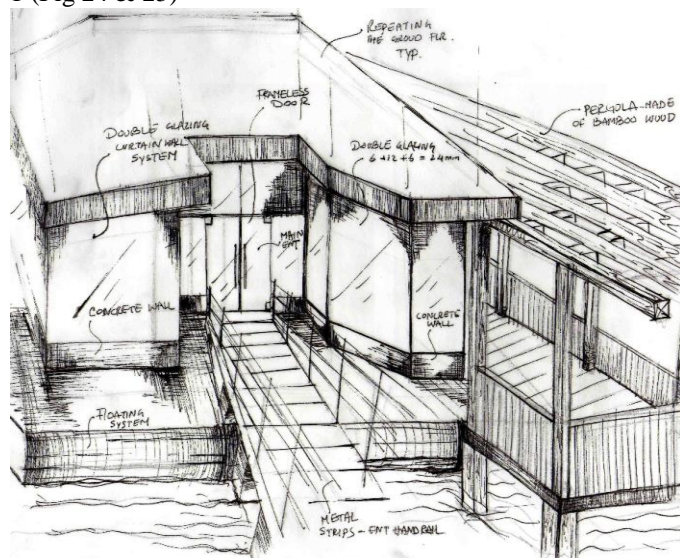 REPEATING
THE GROUD FLR.
TYP.
FRAMELESS
DOOR
PERGOLA-MADE
OF BAMBOO WUUD
DOUBLE GLAZING
CURTAIN WALL
SYSTEM
DOUBLE GLAZING
6 +12 + 6 = 24mm
MAIN
ENT
CONCRETE WALL
CONCRETE
WALL
FLOATING
SYSTEM
METAL
STRIPS - ENT HANDRAIL